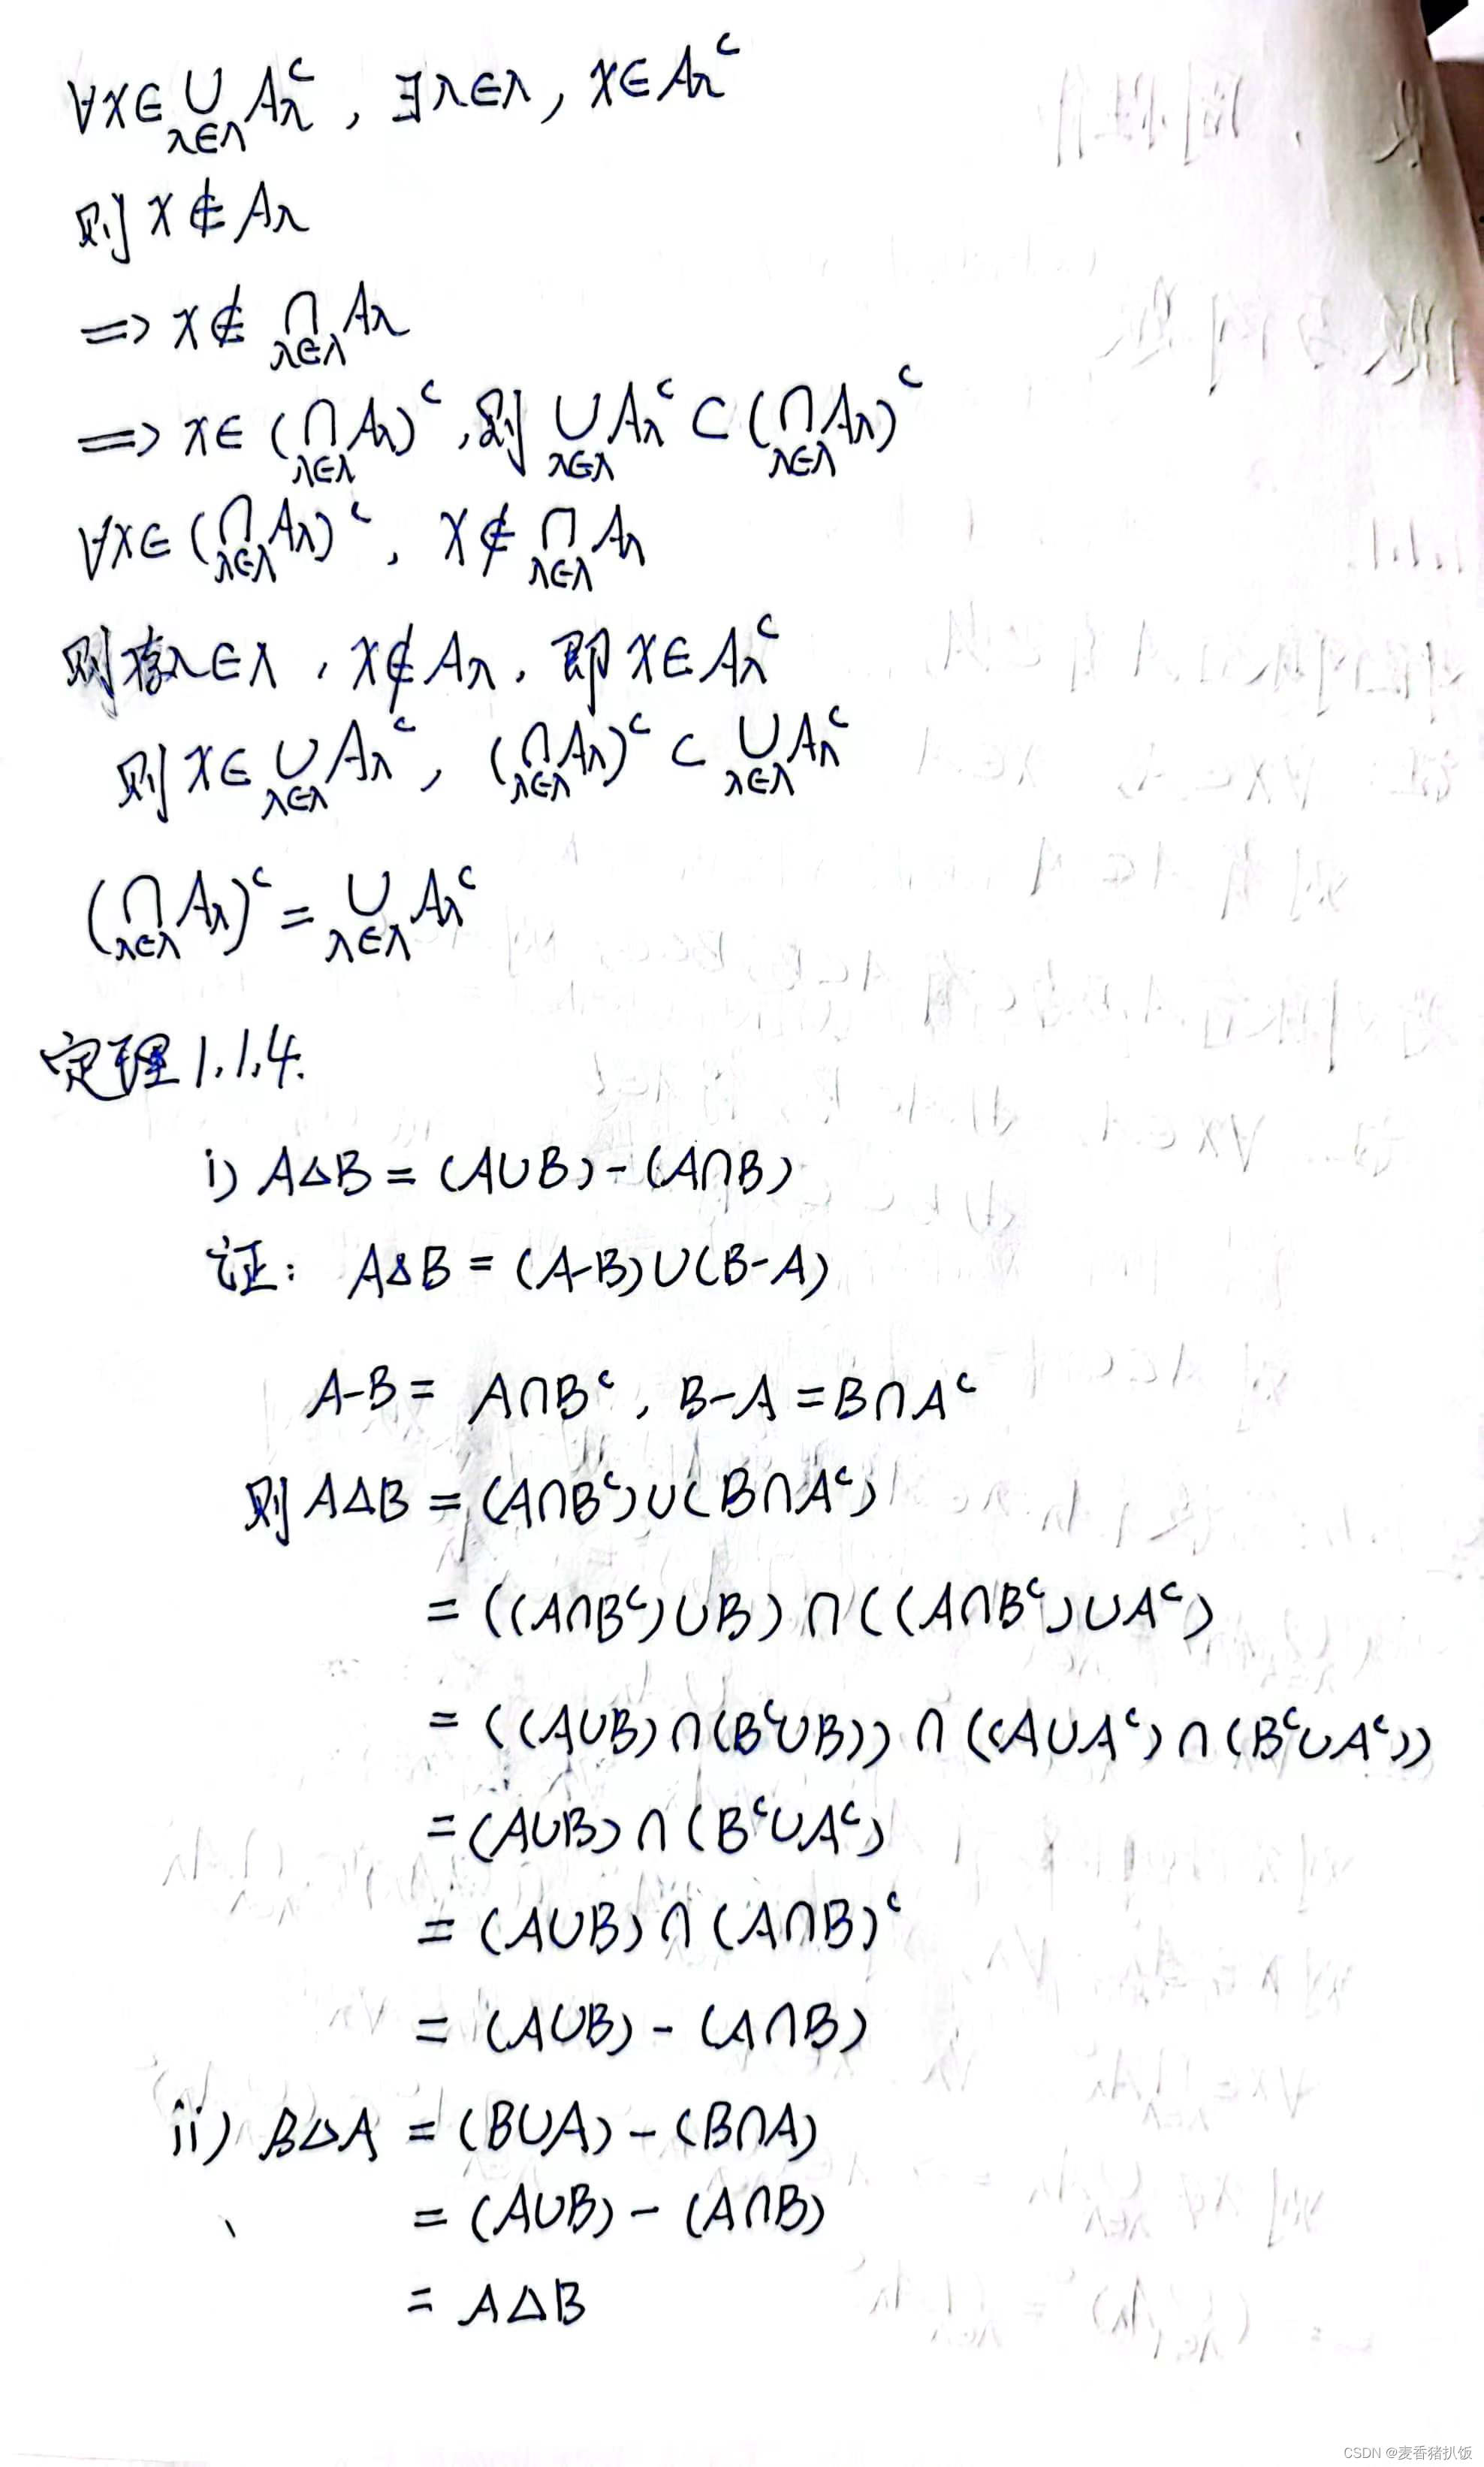 ∀x∈∪_{λ∈Λ} A_λ^c , ∃λ∈Λ, x∈A_λ^c
则 x∉A_λ
⟹ x∉ ∩_{λ∈Λ} A_λ
⟹ x∈(∩_{λ∈Λ} A_λ)^c ,则 ∪_{λ∈Λ} A_λ^c ⊂ (∩_{λ∈Λ} A_λ)^c
∀x∈(∩_{λ∈Λ} A_λ)^c , x∉ ∩_{λ∈Λ} A_λ
则存λ∈Λ , x∉A_λ , 即 x∈A_λ^c
则 x∈ ∪_{λ∈Λ} A_λ^c , (∩_{λ∈Λ} A_λ)^c ⊂ ∪_{λ∈Λ} A_λ^c
(∩_{λ∈Λ} A_λ)^c = ∪_{λ∈Λ} A_λ^c
定理1.1.4.
i) A△B = (A∪B)-(A∩B)
证: A△B = (A-B)∪(B-A)
A-B = A∩B^c , B-A = B∩A^c
则 A△B = (A∩B^c)∪(B∩A^c)
= ((A∩B^c)∪B)∩((A∩B^c)∪A^c)
= ((A∪B)∩(B^c∪B))∩((A∪A^c)∩(B^c∪A^c))
= (A∪B)∩(B^c∪A^c)
= (A∪B)∩(A∩B)^c
= (A∪B)-(A∩B)
ii) B△A = (B∪A)-(B∩A)
= (A∪B)-(A∩B)
= A△B
CSDN @麦香猪扒饭